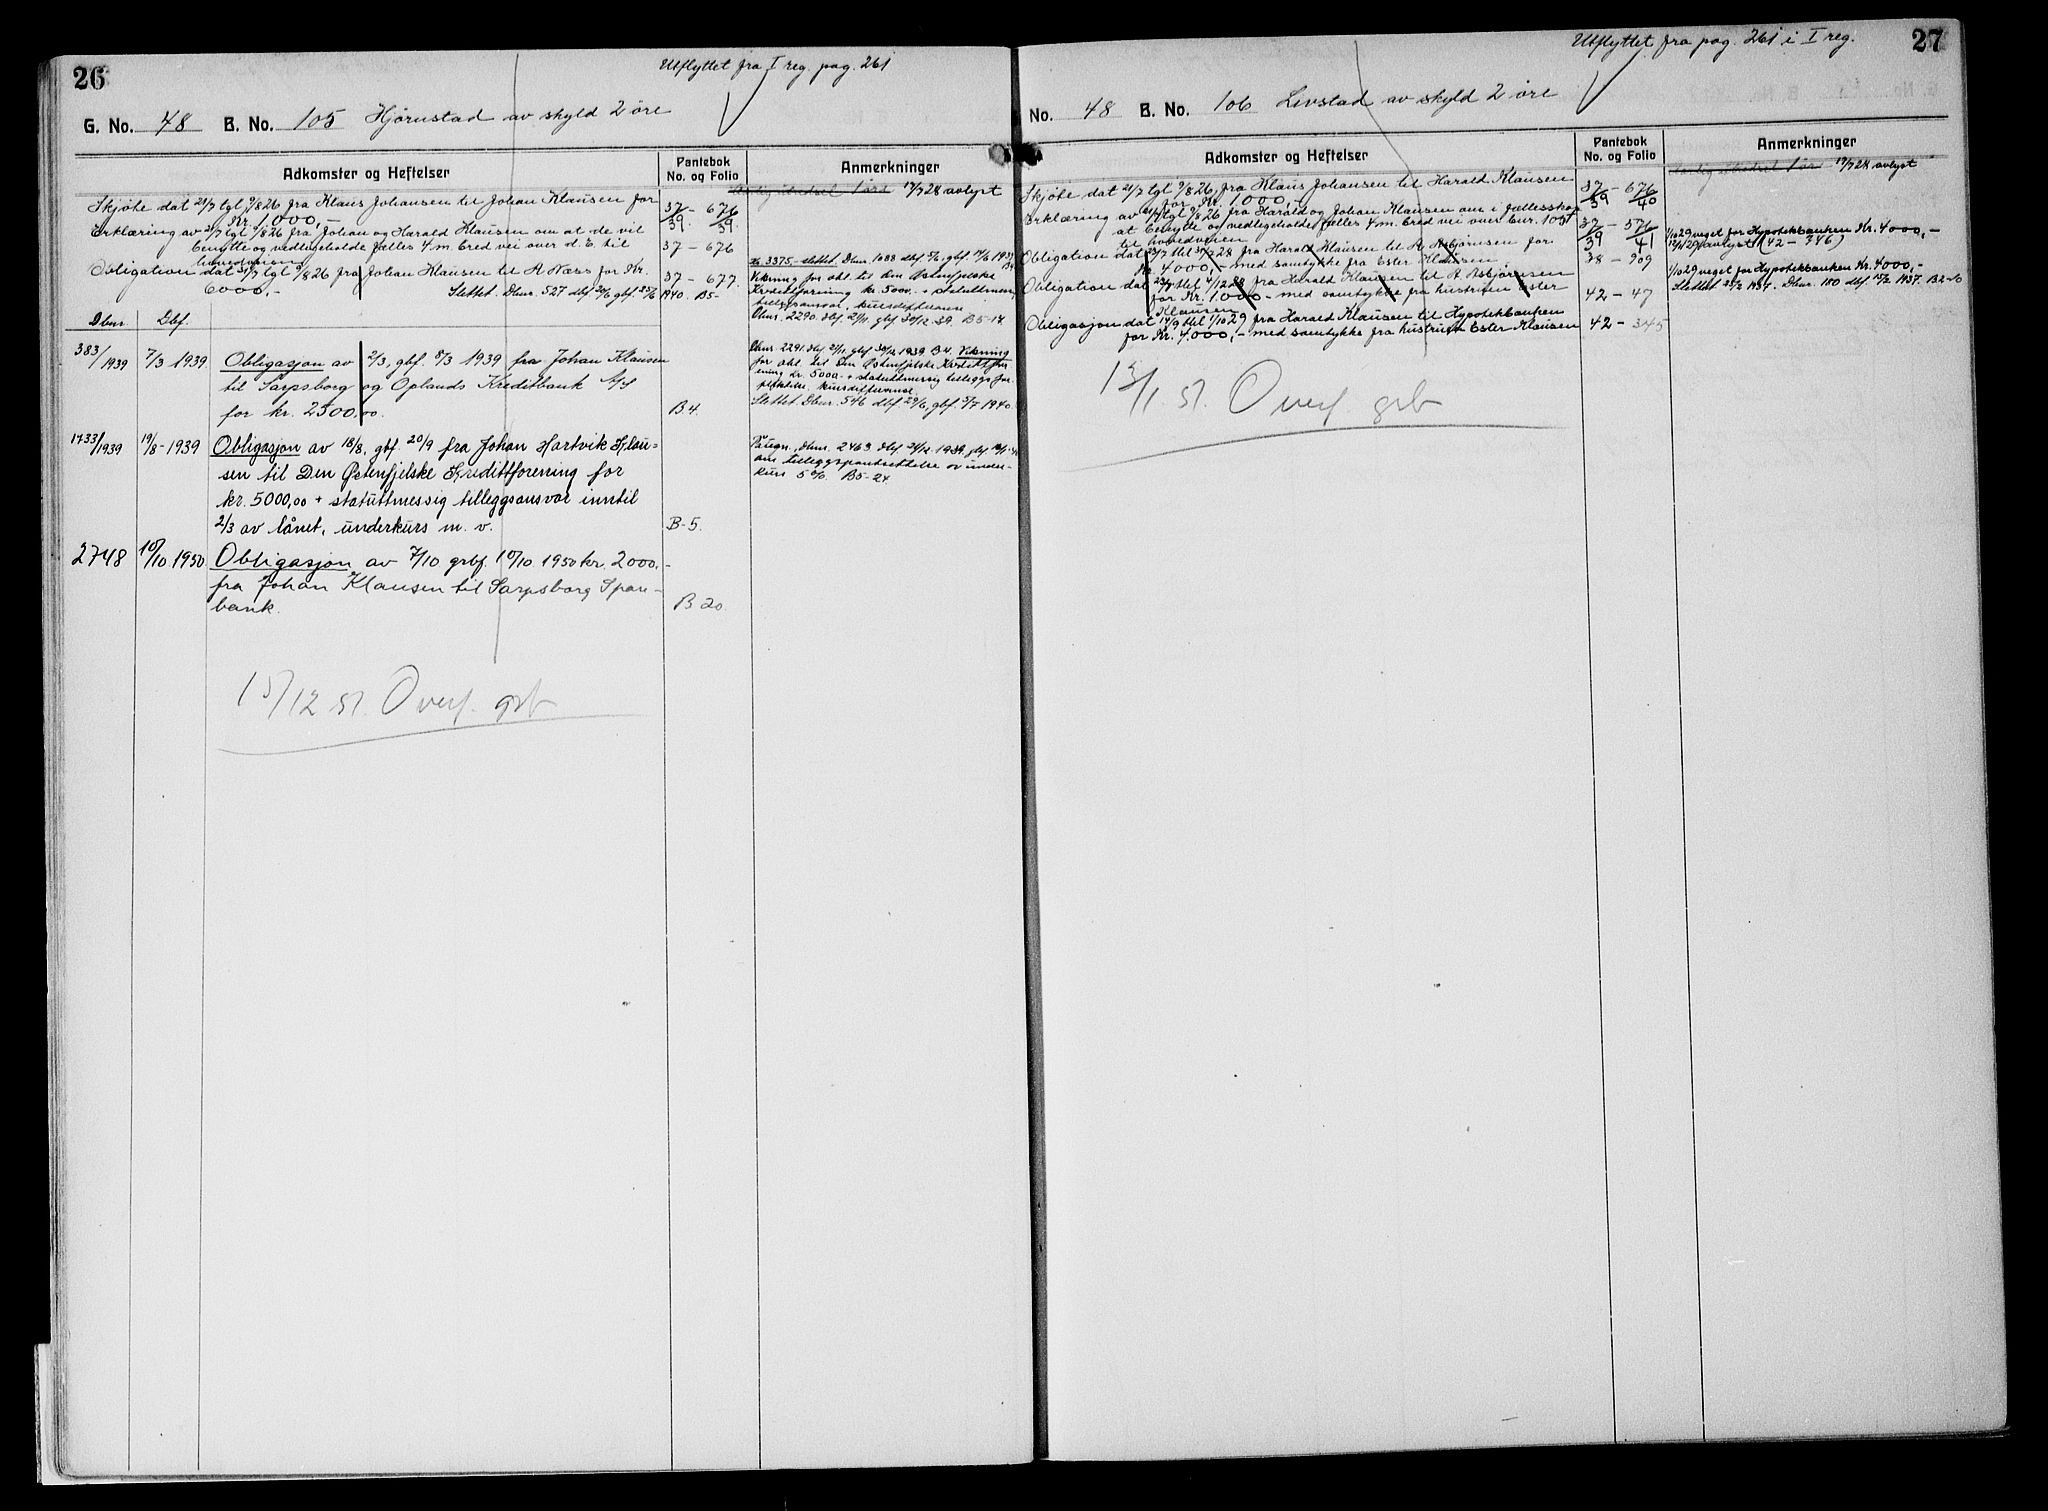 26
Utflyttet fra I reg. pag. 261
G. No. 48 B. No. 105 Hjørnstad av skyld 2 øre
Adkomster og Heftelser
Pantebok
No. og Folio
Anmerkninger
19/7 28 avlyst
Skjøte dat 21/7 tgl 9/8 26 fra Klaus Johansen til Johan Klausen for
Kr. 1000,-
37 - 676
39 39
Erklæring av 21/7 tgl 9/8 26 fra Johan og Harald Klausen om at de vil
benytte og vedligeholde fælles 4 m. bred vei over d. E. til
hovedveien
37 - 676
Obligation dat 31/7 tgl 9/8 26 fra Johan Klausen til A Næss for Kr.
6000,-
37 - 677.
Slettet. Dbnr. 527 dbf. 24/6 gbf. 25/6 1940. B5-
No. 3375 slettet. Dbnr. 1088 dbf.
Vikning for obl. til Den Østenfjelske
Kredittforening kr. 5000.- + statuttmessig
tilleggsansvar, kursdifferanse
Dbnr. 2290. dbf. 29/11 gbf 30/12 39. B5-14.
Dbnr. Dbf.
383/1939 7/3 1939. Obligasjon av 2/3, gbf. 8/3 1939 fra Johan Klausen
til Sarpsborg og Oplands Kreditbank A/S
for kr. 2500,00.
B 4.
Dbnr. 2291. dbf. 29/11 gbf 30/12 1939 B4. Vikning
for obl. til Den Østenfjelske Kredittfor-
ening kr. 5000.- + statuttmessig tilleggsfor-
pliktelse, kursdifferanse
Slettet. Dbnr. 546 dbf. 29/6, gbf. 3/7 1940.
1733/1939 19/8-1939 Obligasjon av 18/8, gbf. 20/9 fra Johan Hartvik Klau-
sen til Den Østenfjelske Kredittforening for
kr. 5000,00 + statuttmessig tilleggsansvar inntil
2/3 av lånet, underkurs m. v.
B-5.
Påtegn., Dbnr. 2463 dbf. 21/12 1939
om tilleggspantsettelse av under-
kurs 5%. B5-24
2748 10/10 1950 Obligasjon av 7/10 grbf. 10/10 1950 kr. 2000,-
fra Johan Klausen til Sarpsborg Spare-
bank.
B 20.
15/12 51. Overf. grb
27
Utflyttet fra pag. 261 i I reg.
No. 48 B. No. 106 Livstad av skyld 2 øre
Adkomster og Heftelser
Pantebok
No. og Folio
Anmerkninger
19/7 28 avlyst
Skjøte dat 21/7 tgl 9/8 26, fra Klaus Johansen til Harald Klausen
for Kr. 1000,-
37 - 676
39 40
Erklæring av 21/7 tgl 9/8 26 fra Harald og Johan Klausen om i fællesskap
at benytte og vedligeholde fælles 4 m. bred vei over bnr. 105
til hovedveien
37 - 576
39 41
Obligation dat 23/7 thl 31/7 28 fra Harald Klausen til A. Asbjørnsen for
Kr. 4000,- med samtykke fra Ester Klausen
38 - 909
1/10 29 veget for Hypotekbanken Kr. 4000,-
12/11 29 avlyst (42 - 746)
Obligation dat 23/7 thl 4/12 28 fra Harald Klausen til A Asbjørnsen
for Kr. 1000 - med samtykke fra hustruen Ester
Klausen
42 - 47
1/10 29 veget for Hypotekbanken Kr. 4000,-
Slettet 25/2 1937. Dbnr. 180 dbf. 15/2 1937. B2-60
Obligasjon dat 14/9 thl 1/10 29 fra Harald Klausen til Hypotekbanken
for Kr. 4.000,- med samtykke fra hustruen Ester Klausen
42 - 345
13/1. 51. Overf. grb